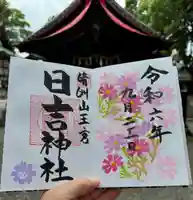 令和六年
九月二十二日
清洲山王宮
日吉神社